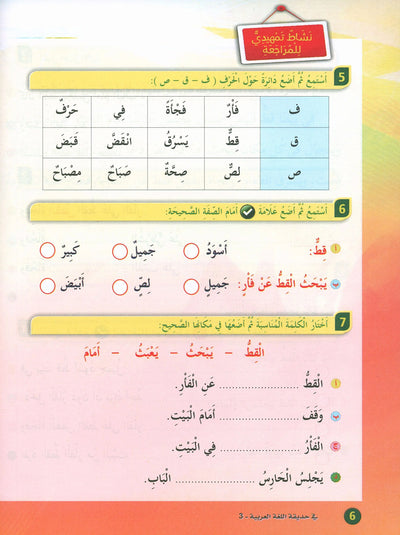 نَشَاطٌ تَمْهِيدِيٌّ
لِلْمُرَاجَعَةِ
5 أَسْتَمِعُ ثُمَّ أَضَعُ دَائِرَةً حَوْلَ الْحَرْفِ ( ف - ق - ص ) :
ف فَأْرٌ فَجْأَةً فِي حَرْفٌ
ق قِطٌّ يَسْرُقُ انْقَضَّ قَبَضَ
ص لِصٌّ صِحَّةٌ صَبَاحٌ مِصْبَاحٌ
6 أَسْتَمِعُ ثُمَّ أَضَعُ عَلَامَةَ ✓ أَمَامَ الصِّفَةِ الصَّحِيحَةِ:
أ قِطٌّ: أَسْوَدُ جَمِيلٌ كَبِيرٌ
ب يَبْحَثُ الْقِطُّ عَنْ فَأْرٍ: جَمِيلٍ لِصٍّ أَبْيَضَ
7 أَخْتَارُ الْكَلِمَةَ الْمُنَاسِبَةَ ثُمَّ أَضَعُهَا فِي مَكَانِهَا الصَّحِيحِ:
الْقِطُّ - يَبْحَثُ - يَعْبَثُ - أَمَامَ
أ الْقِطُّ .................... عَنِ الْفَأْرِ.
ب وَقَفَ .................... أَمَامَ الْبَيْتِ.
ج الْفَأْرُ .................... فِي الْبَيْتِ.
د يَجْلِسُ الْحَارِسُ .................... الْبَابِ.
6 في حديقة اللغة العربية - 3